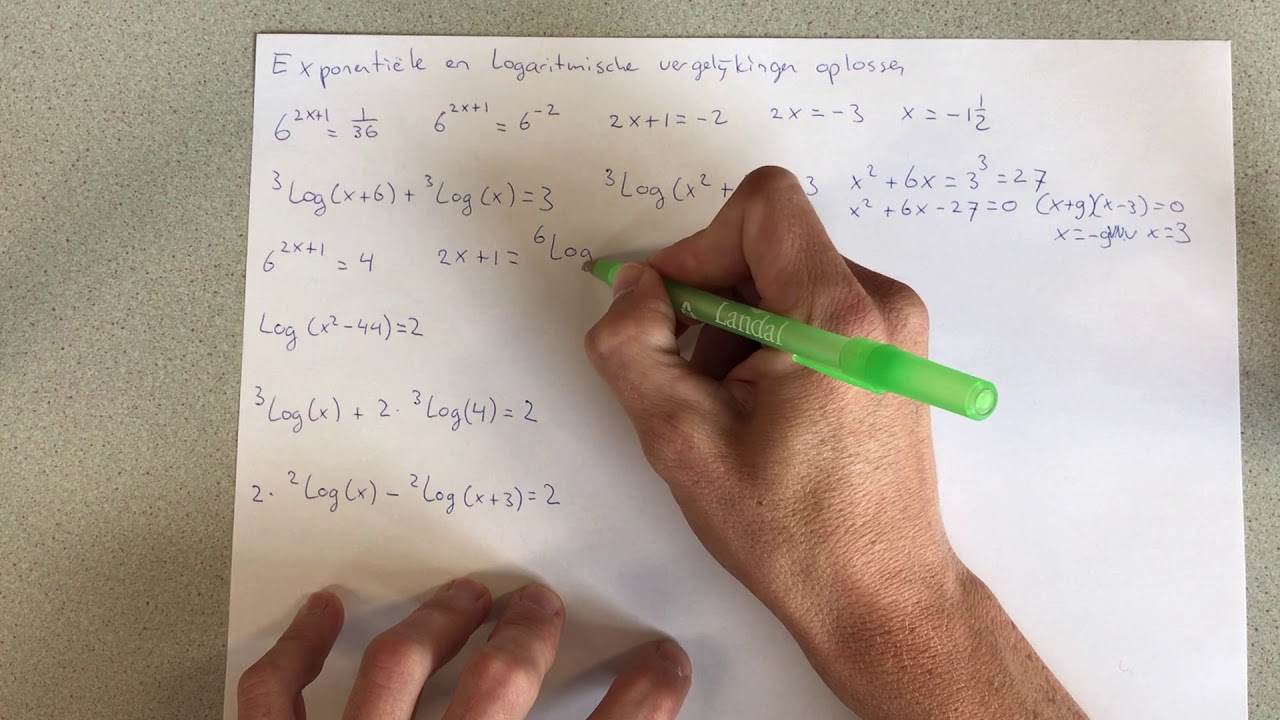 Exponentiële en Logaritmische vergelijkingen oplossen
6^(2x+1) = 1/36   6^(2x+1) = 6^(-2)   2x+1 = -2   2x = -3   x = -1 1/2
³Log(x+6) + ³Log(x) = 3   ³Log(x² + 3   x² + 6x = 3³ = 27
x² + 6x - 27 = 0   (x+9)(x-3) = 0
x = -9 v x = 3
6^(2x+1) = 4   2x+1 = ⁶Log
Log(x²-44) = 2
³Log(x) + 2 · ³Log(4) = 2
2 · ²Log(x) - ²Log(x+3) = 2
Landal